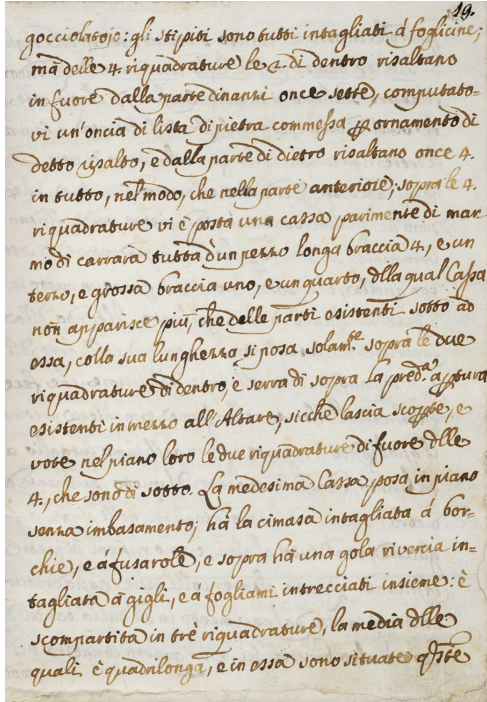 19.
gocciolatojo: gli stipiti sono tutti intagliati á foglicine;
mà delle 4. riquadrature le 2. di dentro risaltano
in fuore dalla parte dinanzi once sette, computato-
vi un'oncia di lista di pietra commessa p ornamento di
detto risalto, e dalla parte di dietro risaltano once 4.
in tutto, nel modo, che nella parte anteriore, sopra le 4.
riquadrature vi è posta una cassa parimente di mar
mo di carrara tutta d'un pezzo longa braccia 4, e un
terzo, e grossa braccia uno, e un quarto, dlla qual Cassa
non apparisce più, che delle parti esistenti sotto ad
essa, colla sua lunghezza si posa solam.te sopra le due
riquadrature di dentro, e serra di sopra la pred.a apptura
esistenti in mezzo all'Altare, sicche lascia scopte, e
vote nel piano loro le due riquadrature di fuore dlle
4, che sono di sotto. La medesima Cassa posa in piano
senza imbasamento; hà la cimasa intagliata á bor-
chie, e á fusarole, e sopra hà una gola rivercia in-
tagliata à gigli, e á fogliami intrecciati insieme: è
scompartita in trè riquadrature, la media dlle
quali è quadrilonga, e in essa sono situate qste